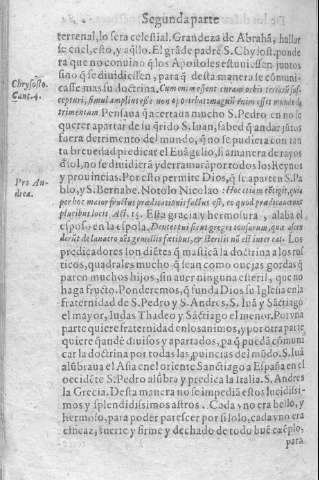 Segunda parte
terrenal, lo sera celestial. Grandeza de Abrahã, hallar
se en el, esto, y aq̃llo. El grãde padre S. Chrysost. ponde
ra que no conuino q̃ los Apostoles estuuiessen juntos
sino q̃ se diuidiessen, para q̃ desta manera se comuni-
casse mas su doctrina. Cum
Chrysosto.
Pensaua q̃ acertaua mucho S. Pedro en no se
querer apartar de su q̃rido S. Iuan, sabed q̃ andar jũtos
fuera detrimento del mundo, q̃ no se pudiera con tan
ta breuedad predicar el Euãgelio, si a manera de rayos
d̃ sol, no se diuidierã y derramarã por todos los Reynos
y prouincias. Por esto permite Dios, q̃ se aparten S. Pa
blo, y S. Bernabe. Notolo Nicolao: Hoc autem
Pro An-
dræa.
per hoc maior fructus prædicationis factus est, eo quod prædicauerunt
pluribus locis. Act. 15. Esta gracia y hermosura, alaba el
esposo en la esposa. Dentes tui sicut greges tonsarum, quæ ascen
derunt de lauacro oẽs gemellis fœtibus, & sterilis nõ est inter eas. Los
predicadores son diẽtes q̃ mastică la doctrina a los rus
ticos, quadrales mucho q̃ sean como ouejas gordas q̃
paren muchos hijos, sin auer ninguna esteril, que no
haga fructo. Ponderemos, q̃ funda Dios su Iglesia en la
fraternidad de S. Pedro y S. Andres, S. Iuã y Sãctiago
el mayor, Iudas Thadeo y Sãctiago el menor. Por vna
parte quiere fraternidad en los animos, y por otra parte
quiere q̃ andẽ diuisos y apartados, pa q̃ puedã comuni
car la doctrina por todas las prouincias del mũdo. S. Iuã
alũbraua el Asia en el oriente Sanctiago a España en el
occidẽte S. Pedro alũbra y predica la Italia. S. Andres
la Grecia. Desta manera no se impediã estos lucidissi-
mos y splendidissimos astros. Cada vno era bello, y
hermoso, para poder parescer por si solo, cada vno era
efficaz, fuerte y firme y dechado de todo buẽ exẽplo,
para